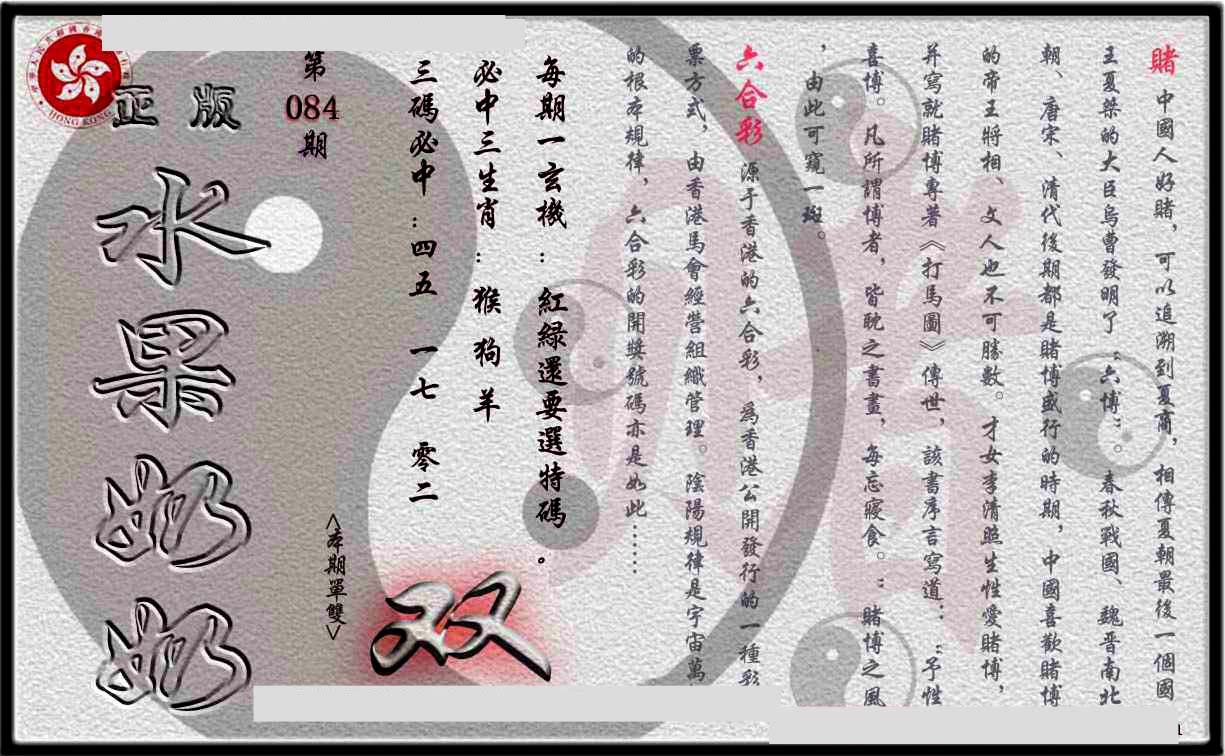 賭 中國人好賭，可以追溯到夏商，相傳夏朝最後一個國
王夏桀的大臣烏曹發明了“六博”。春秋戰國、魏晉南北
朝、唐宋、清代後期都是賭博盛行的時期，中國喜歡賭博
的帝王將相、文人也不可勝數。才女李清照生性愛賭博，
并寫就賭博專著《打馬圖》傳世，該書序言寫道：“予性
喜博。凡所謂博者，皆耽之晝，每忘寢食。”賭博之風
，由此可窺一斑。
六合彩 源于香港的六合彩，為香港公開發行的一種彩
票方式，由香港馬會經營組織管理。陰陽規律是宇宙萬
的根本規律，六合彩的開獎號碼亦是如此……
每期一玄機：紅緑還要選特碼。
必中三生肖：猴 狗 羊
三碼必中：四五 一七 零二
第
084
期
<本期單雙>
双
正 版
水果奶奶
HONG KONG